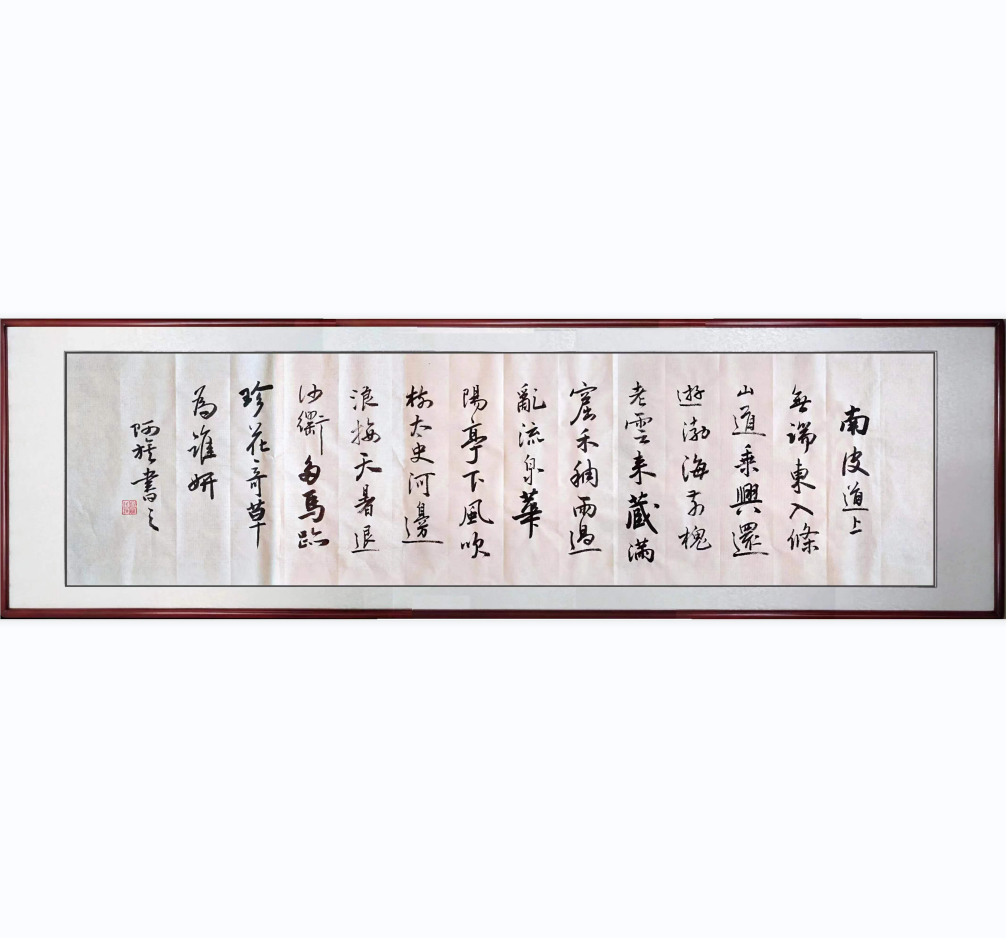 南皮道上
無端東入條
山道乘興還
遊渤海前槐
老雲來藏滿
窟禾稠雨過
亂流泉華
陽亭下風吹
太史河邊
浪天暑退
沙衢多馬跡
珍花奇草
為誰妍
阿書之